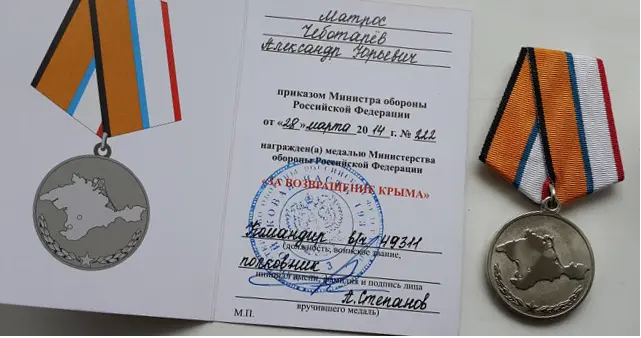 Матрос
Чеботарёв
Александр Юрьевич
приказом Министра обороны
Российской Федерации
от «28» марта 2014 г. № 222
награжден(а) медалью Министерства
обороны Российской Федерации
«ЗА ВОЗВРАЩЕНИЕ КРЫМА»
Командир в/ч 49311
(должность, воинское звание,
полковник
инициал имени, фамилия и подпись лица
А. Степанов
вручившего медаль)
М.П.